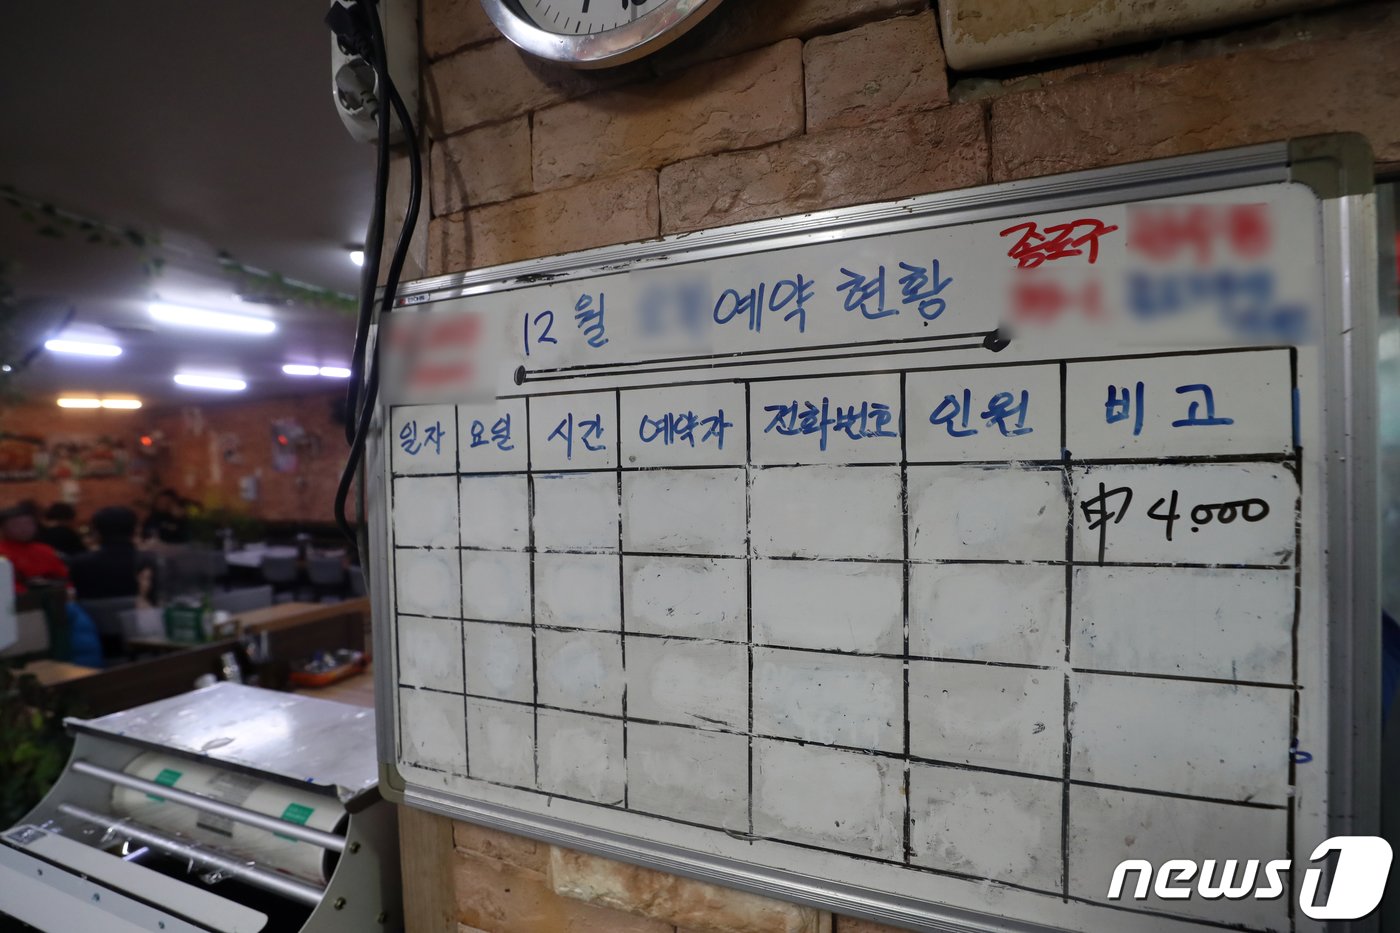 종로구
12월 예약 현황
일자 요일 시간 예약자 전화번호 인원 비고
4.000
news1